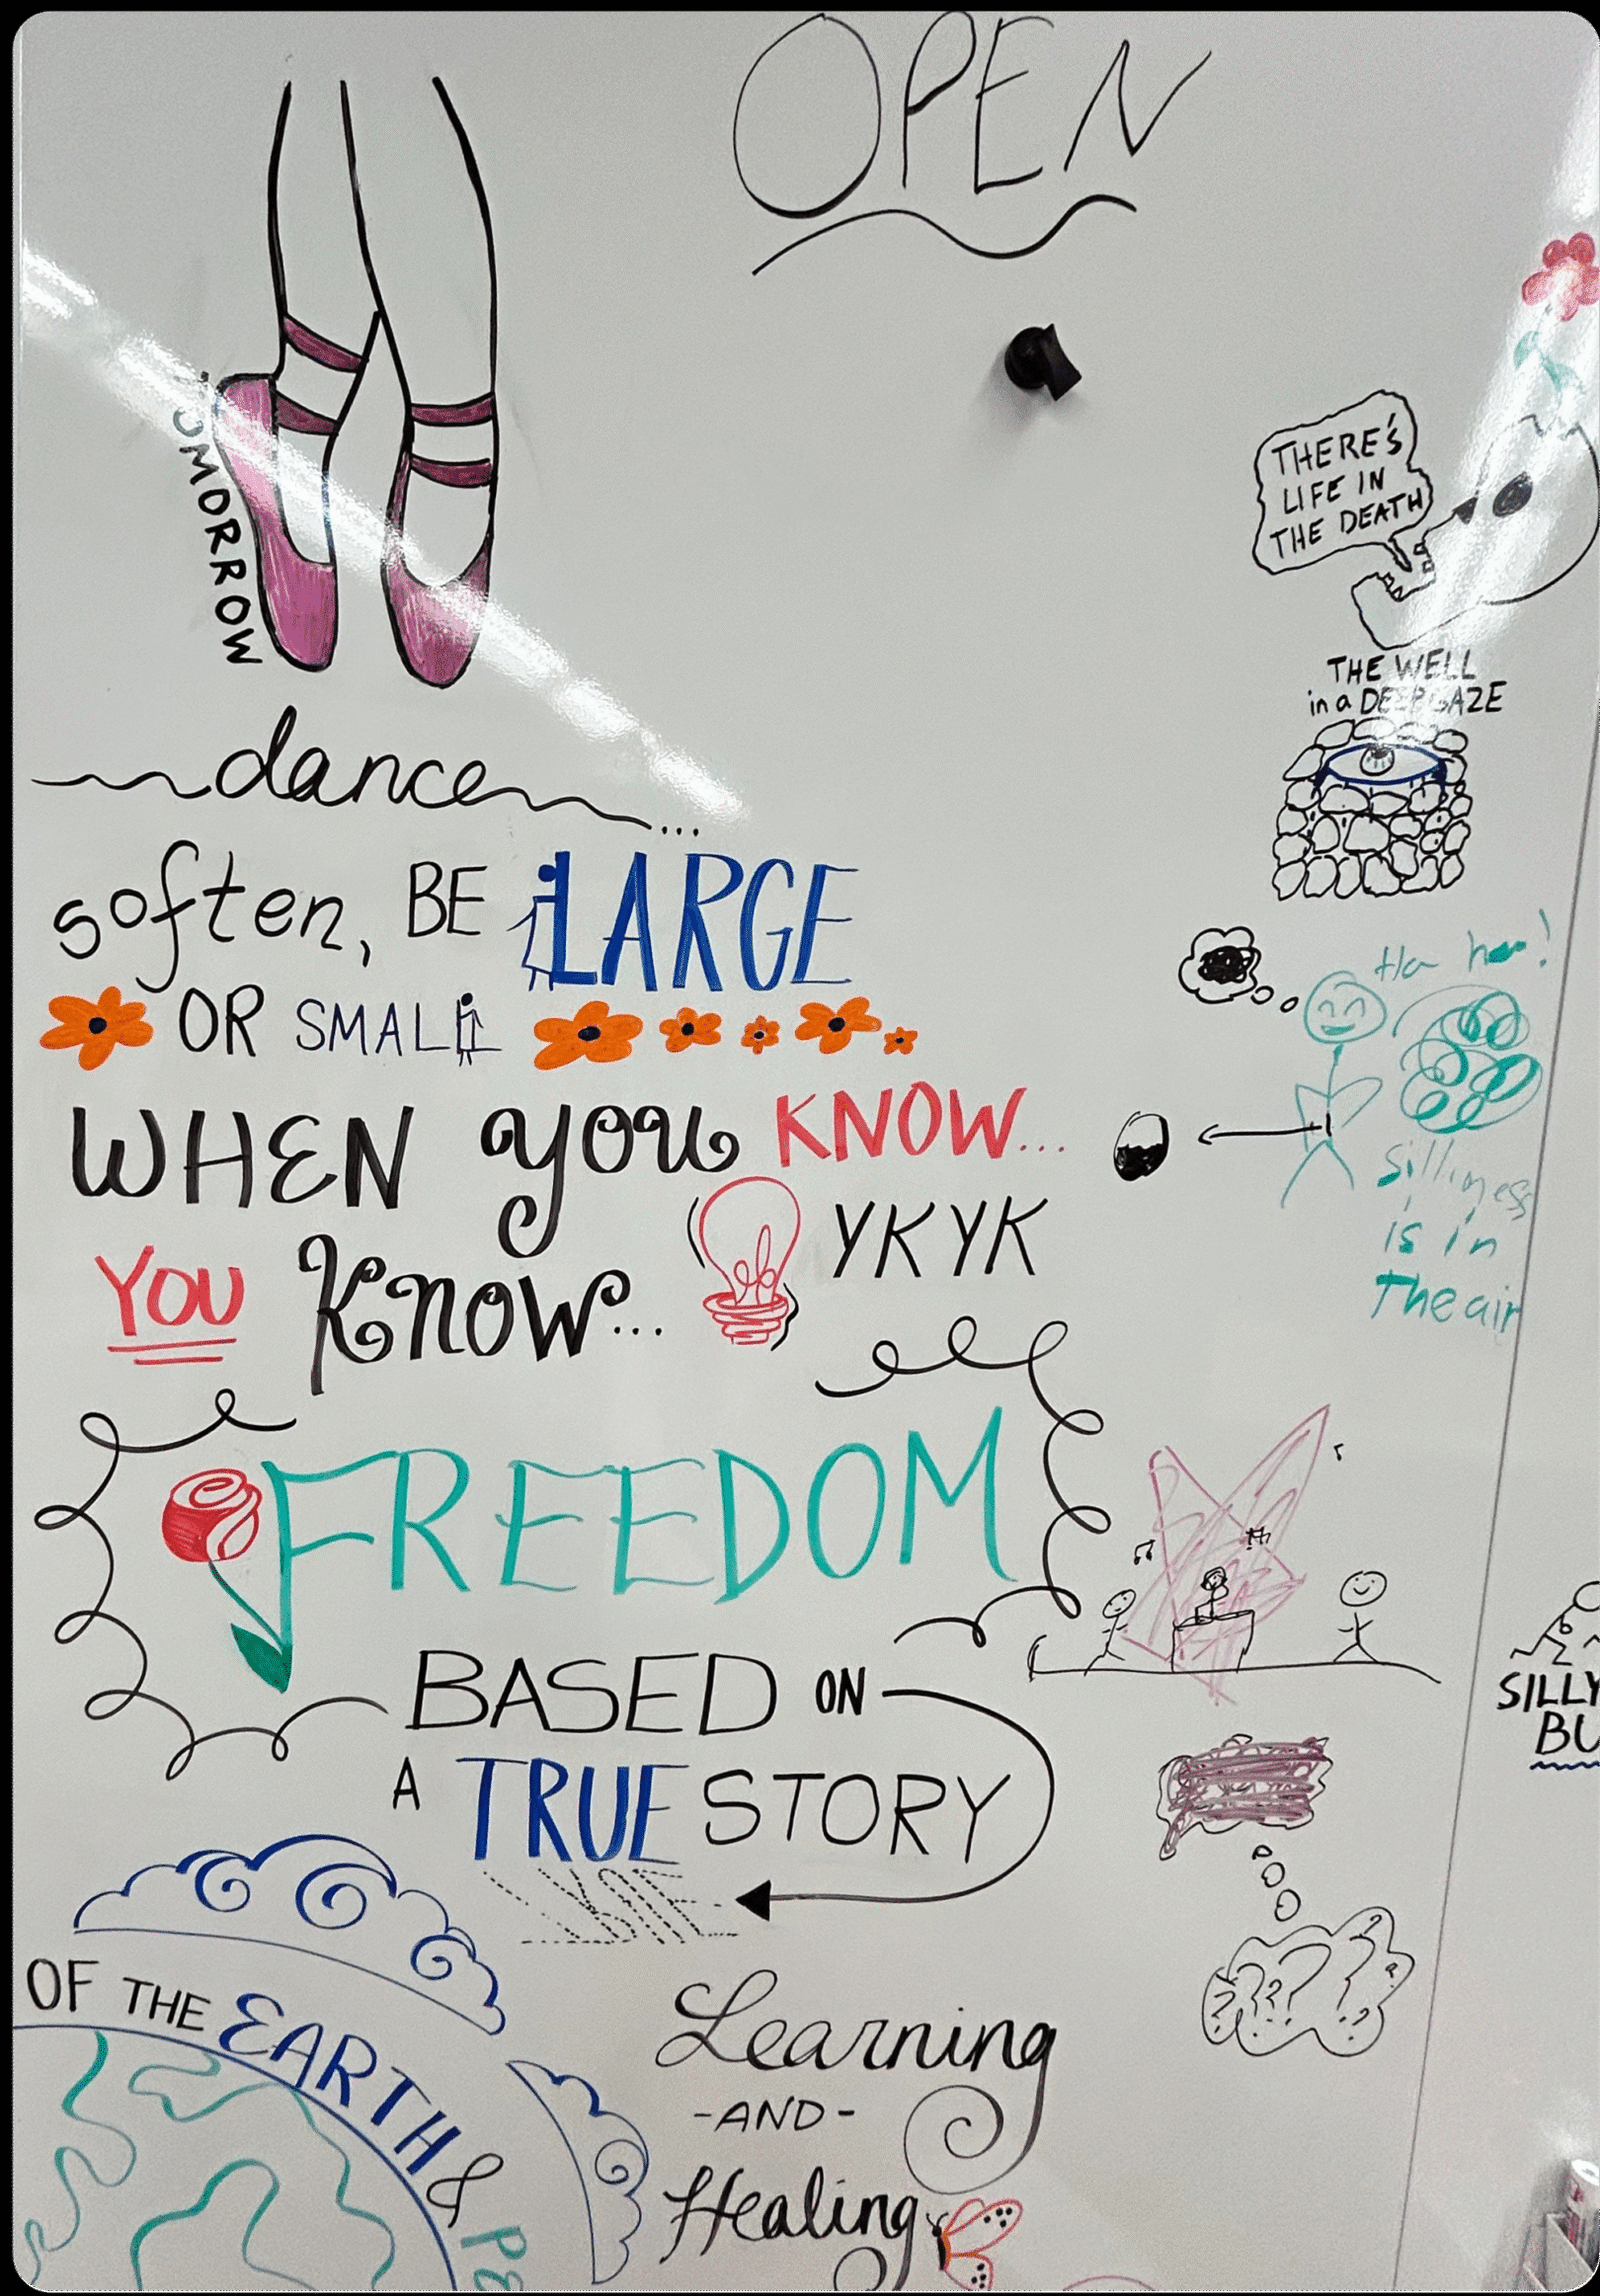 OPEN
TOMORROW
dance...
soften, BE LARGE
OR SMALL
WHEN you KNOW...
YOU Know... YKYK
FREEDOM
BASED ON
A TRUE STORY
OF THE EARTH &
Learning
-AND-
Healing
THERE'S
LIFE IN
THE DEATH
THE WELL
in a DEEP GAZE
Ha ha!
Silliness
is in
The air
? ? ? ? ? ? ?
SILLY
BU